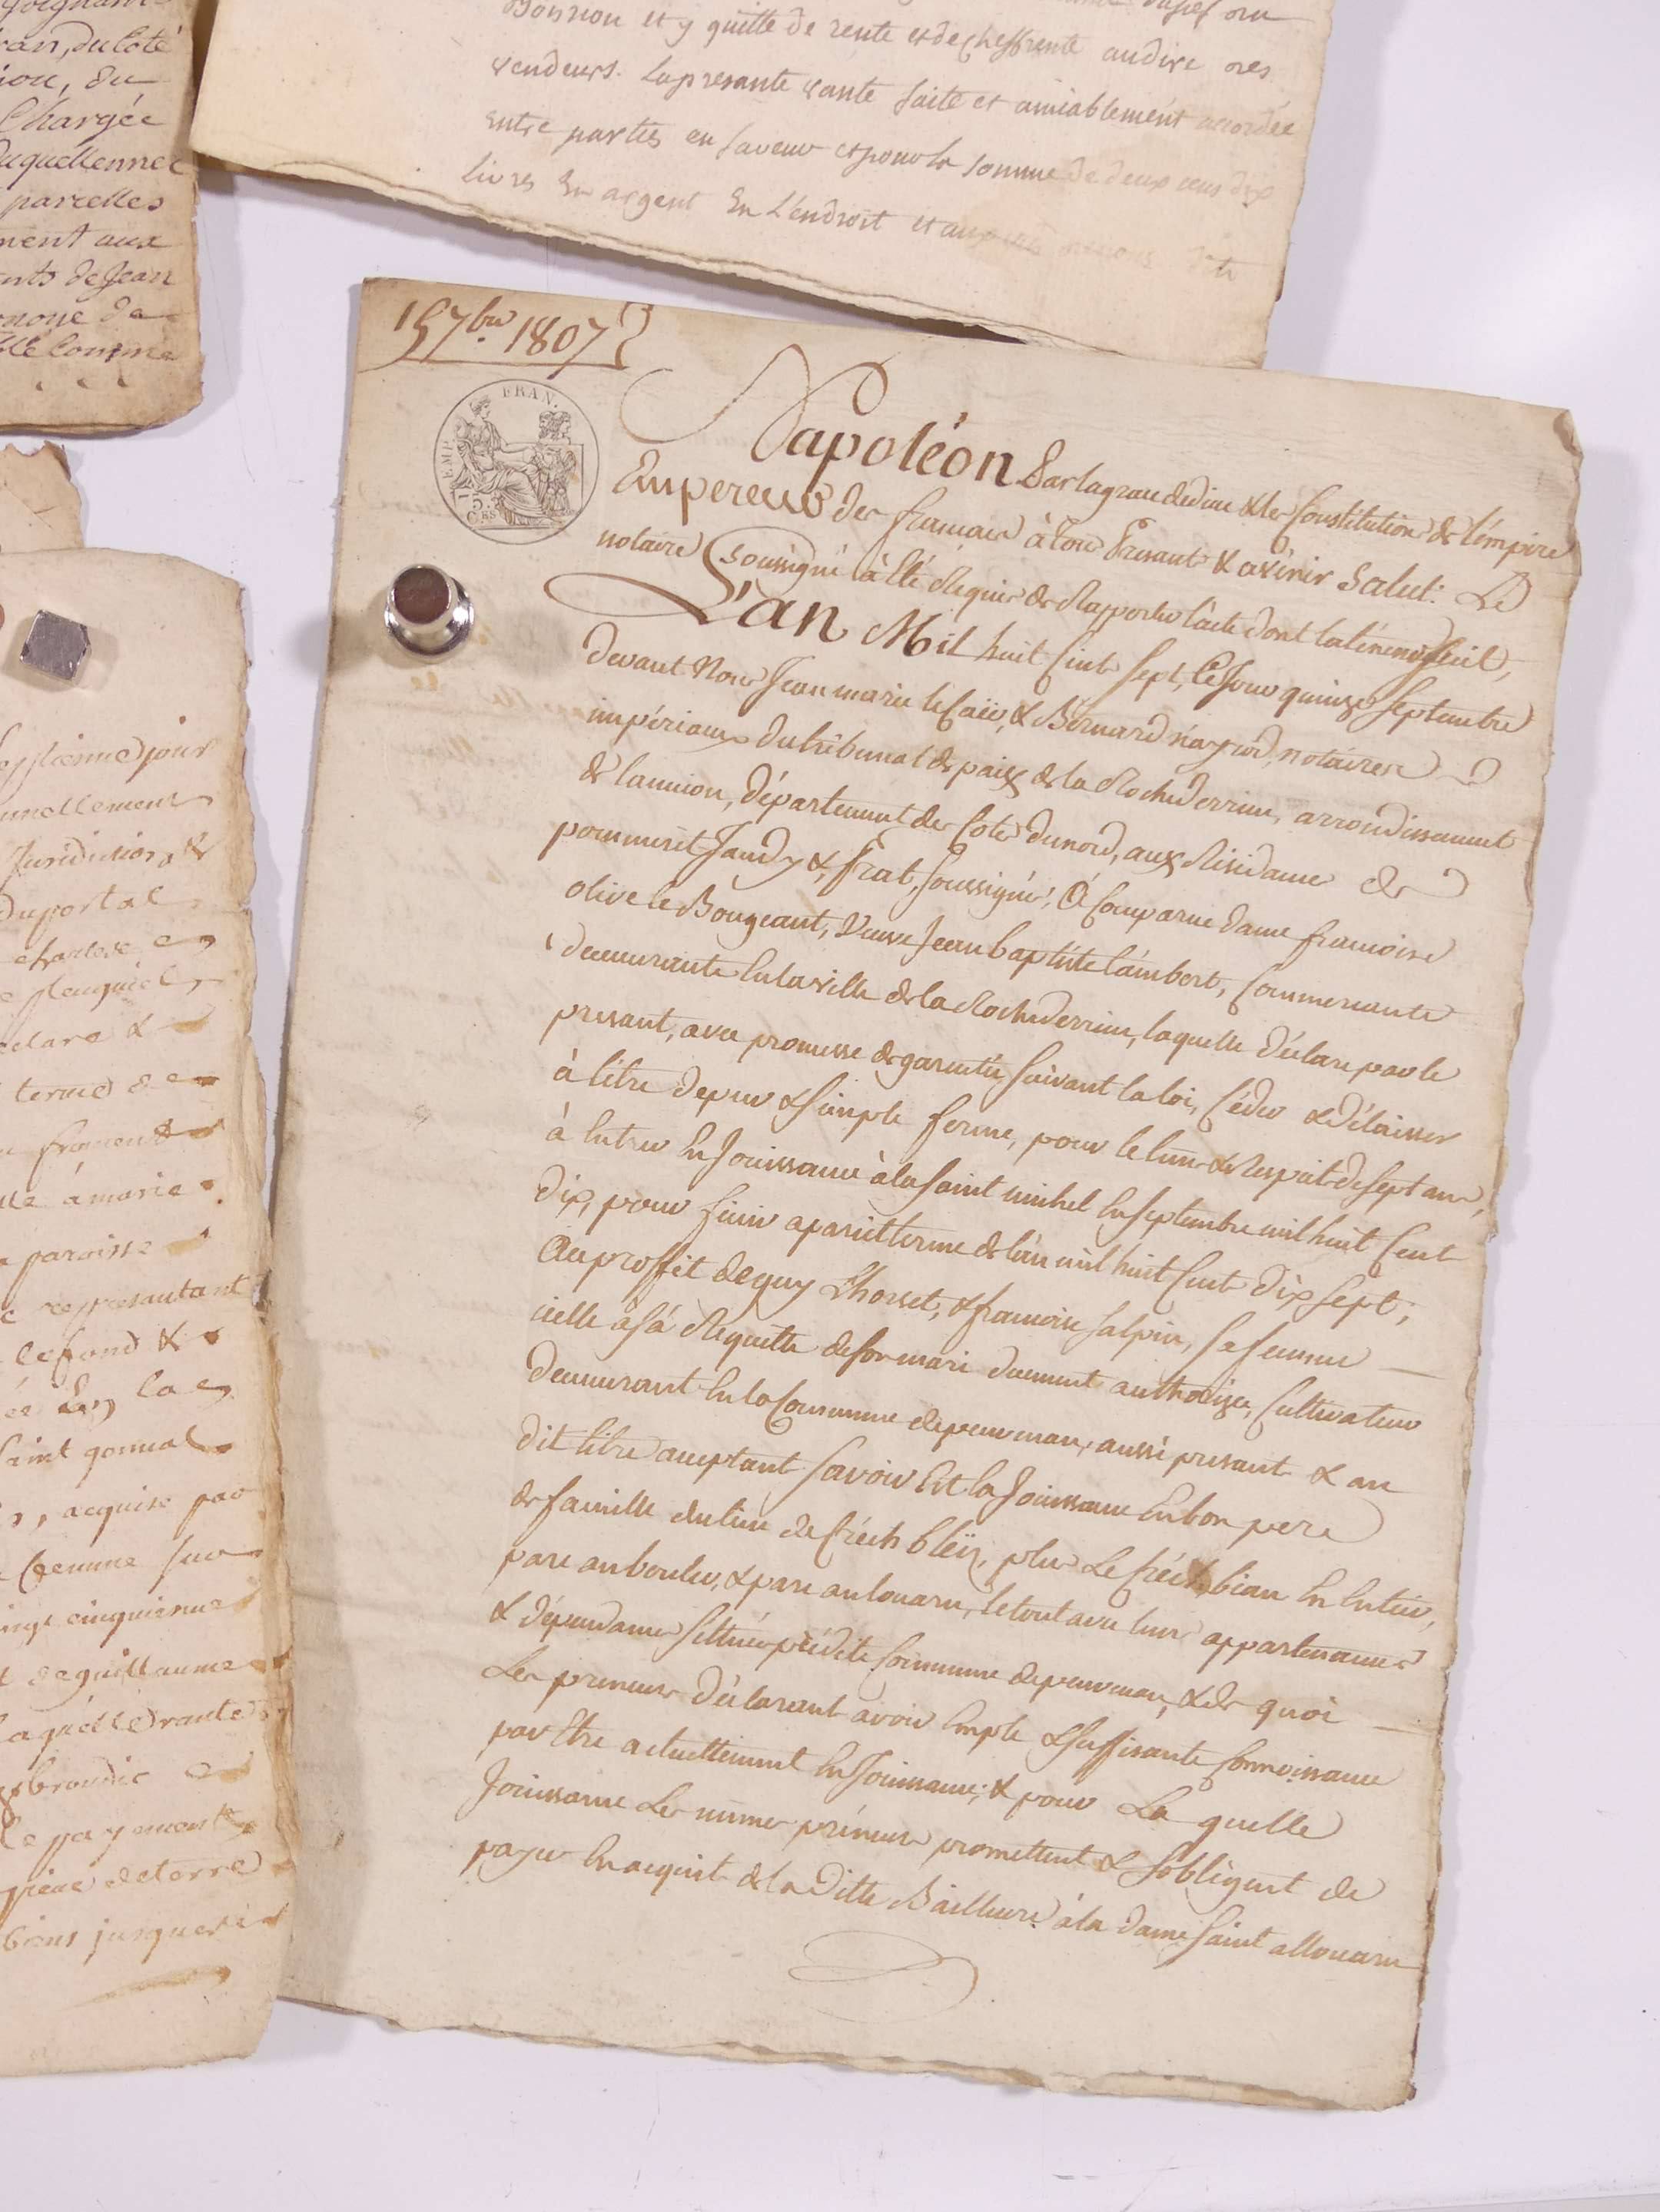 Boisriou et y quitte de rente et de cheffrente au dire des
vendeurs. La presante vante faite et amiablement accordée
entre parties en faveur et pour la somme de deux cens dix
livres en argent en l'endroit et aux
an, du Coté
Chargée
Daquellennec
parcelles
ment aux
nts de Jean
noye de
Comme
15 7bre 1807
EMP. FRAN.
75 CES
Napoléon par la grace de dieu & les Constitutions de l'émpire
Empereur des francais à tous présants & avénir Salut: Le
notaire soussigné à été Requis de Rapporter l'acte dont la téneur suit,
L'an Mil huit Cent Sept, Ce Jour quinze Septembre
devant Nous Jean marie le Caër, & Bernard notaires
impériaux du tribunal de paix de la Rochederrien, arrondissement
de lannion, départemant des Cotes du nord, aux Residances de
pommerit Jaudy & prat, soussignés, à Comparue dame francoise
olive le Bougeant, Veuve Jean baptiste lambert, Commercante
demeurante En la ville de la Rochederrien, laquelle déclare par le
présant, avec promesse de garantie suivant la loi, Céder & délaisser
à titre de pur & simple ferme, pour le tems & Respait de sept ans,
à Entrer En Jouissance à la saint michel En septembre mil huit Cent
dix, pour finir a pariel terme de l'an mil huit Cent dix sept;
Au proffit de guy Lhorset, & francoise Salpin, sa femme
icelle à sa Requette de son mari duement authorizée, Cultivateurs
demeurant En la Commune de penvenan, aussi présants & au
dit titre acceptant Savoir Est la Jouissance En bon pere
de famille du lieu de Créch bleiz, plus Le Créch bian En Entier,
parc an boulou, & parc an louarn, le tout avec leurs appartenances
& dépendances sittués prédite Commune de penvenan, & de quoi
Les preneurs déclarent avoir Emple & suffisante Connoissance
par Etre actuellement En Jouissance; & pour La quelle
Jouissance Les mêmes préneurs promettent & s'obligent de
payer En acquit de la ditte Bailleure à la dame saint allouarn
jour
nnellement
Juridiction, &
Duportal
charlese
pleuguiel
declare &
terme de
froment
à marie
paroisse
representant
le fond &
En la
saint gonval
, acquise par
femme sur
vingt cinquieme
de guillaume
laquelle vante
le payement
piece de terre
biens jusques à